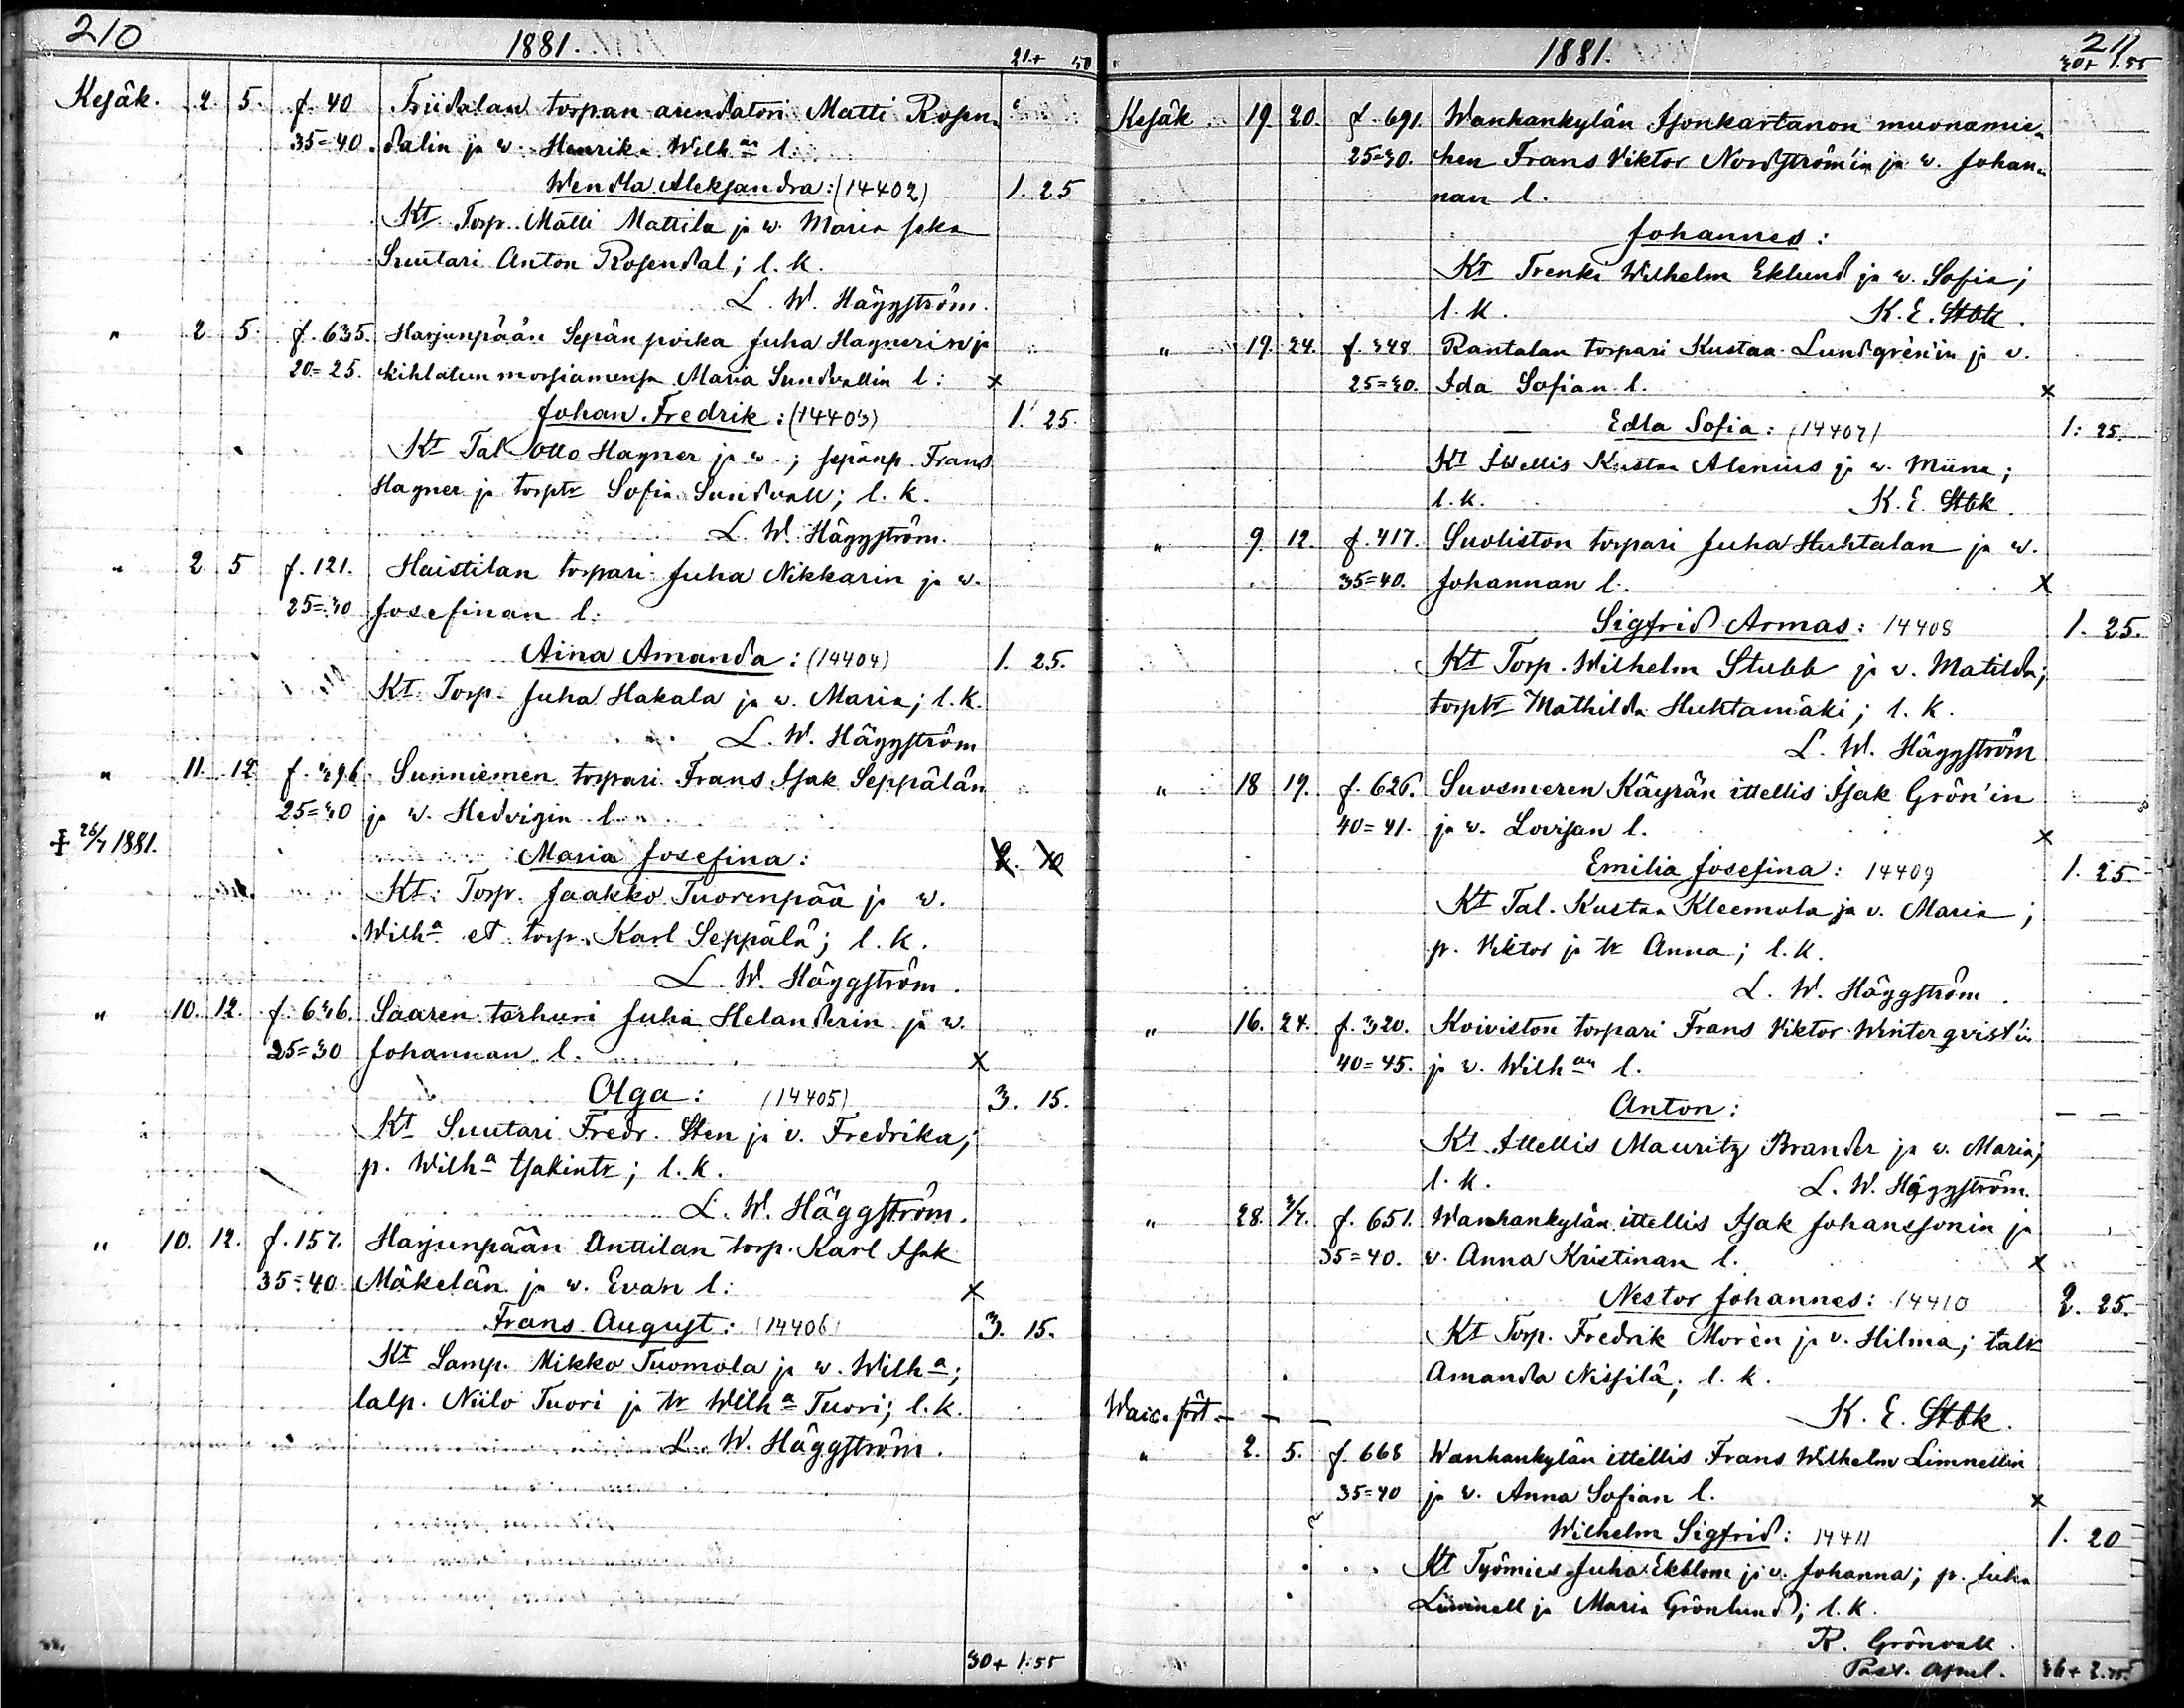 210
1881.
21+ 50
Kesäk. 2. 5. f. 40 Friidalan torpan arendatori Matti Rosen-
35=40. dalin ja w. Henrika Wilhan l:
Wendla Aleksandra: (14402) 1. 25
Kt Torp. Matti Mattila ja w. Maria seka
Suutari Anton Rosendal; l. k.
L. W. Häggström.
" 2 5. f. 635. Harjunpään Sepän poika Juha Hagnerin ja
20=25. kihlatun morsiamensa Maria Sundvallin l: x
Johan Fredrik: (14403) 1. 25.
Kt Tal Otto Hagner ja w.; sepänp. Frans
Hagner ja torptr Sofia Sundvall; l. k.
L. W. Häggström.
" 2 5 f. 121. Haistilan torpari Juha Nikkarin ja w.
25=30 Josefinan l:
Aina Amanda: (14404) 1. 25.
Kt Torp. Juha Hakala ja w. Maria; l. k.
L. W. Häggström
" 11. 12. f. 396. Sunniemen torpari Frans Isak Seppälän
25=30 ja w. Hedvigin l.
‡ 26/7 1881. Maria Josefina:
Kt: Torp. Jaakko Tuorenpää ja w.
Wilha et torp. Karl Seppälä; l. k.
L. W. Häggström.
" 10. 12. f. 636. Saaren torhuri Juha Helanderin ja w.
25=30 Johannan l. x
Olga: (14405) 3. 15.
Kt Suutari Fredr. Sten ja v. Fredrika;
p. Wilha Isakintr; l. k.
L. W. Häggström.
" 10. 12. f. 157. Harjunpään Anttilan torp. Karl Isak
35=40 Mäkelän ja w. Evan l: x
Frans August: (14406) 3. 15.
Kt Lamp. Mikko Tuomola ja w. Wilha;
lalp. Niilo Tuori ja tr Wilha Tuori; l. k.
L. W. Häggström.
30+ 1:55
1881.
211
30+ 1.55
Kesäk 19. 20. f. 691. Wanhankylän Isonkartanon muonamie-
25=30. hen Frans Viktor Nordström'in ja w. Johan-
nan l.
Johannes:
Kt Trenki Wilhelm Eklund ja w. Sofia;
l. k. K. E. Stbk.
" 19. 24. f. 348 Rantalan torpari Kustaa Lundgrèn'in ja v.
25=30. Ida Sofian l. x
Edla Sofia: (14407) 1: 25.
Kt Ittellis Kustaa Alenius ja w. Miina;
l. k. K. E. Stbk.
" 9. 12. f. 417. Suoliston torpari Juha Huhtalan ja w.
35=40. Johannan l. x
Sigfrid Armas: 14408 1. 25.
Kt Torp. Wilhelm Stubb ja v. Matilda;
torptr Mathilda Huhtamäki; l. k.
L. W. Häggström
" 18 19. f. 626. Suosmeren Käyrän ittellis Isak Grön'in
40=41. ja w. Lovisan l. x
Emilia Josefina: 14409 1. 25
Kt Tal. Kustaa Kleemola ja v. Maria;
p. Viktor ja tr Anna; l. k.
L. W. Häggström.
" 16. 24. f. 320. Koiviston torpari Frans Viktor Winterqvist'in
40=45. ja v. Wilhan l.
Anton: — —
Kt Ittellis Mauritz Brander ja w. Maria;
l. k. L. W. Häggström.
" 28. 3/7. f. 651. Wanhankylän ittellis Isak Johanssonin ja
35=40. v. Anna Kristinan l. x
Nestor Johannes: 14410 2. 25.
Kt Torp. Fredrik Morèn ja v. Hilma; taltr
Amanda Nissilä; l. k.
K. E. Stbk.
— — —
" 2. 5. f. 668 Wanhankylän ittellis Frans Wilhelm Limnellin
35=40 ja w. Anna Sofian l. x
Wilhelm Sigfrid: 14411 1. 20
Kt Työmies Juha Ekblom ja v. Johanna; p. Juha
Limnell ja Maria Grönlund; l. k.
R. Grönvall.
36+ 2.75